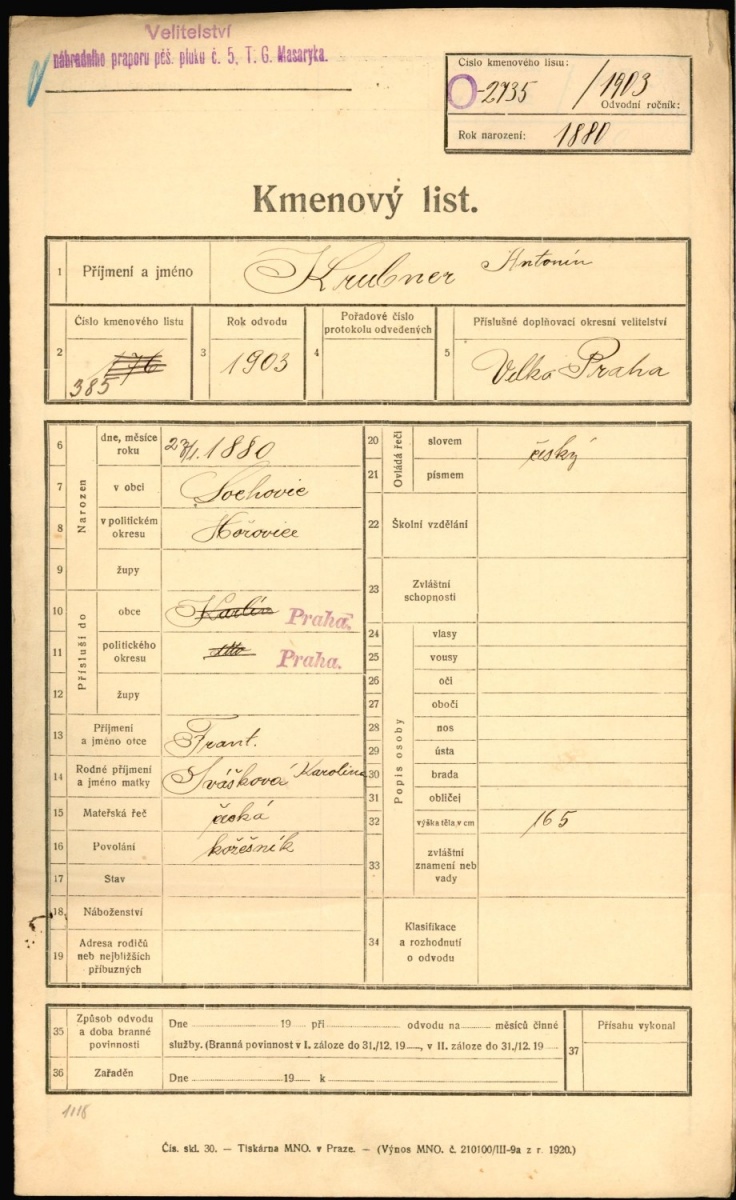 Velitelství
náhradního praporu pěš. pluku č. 5, T. G. Masaryka.
Číslo kmenového listu:
O-2735 /1903
Odvodní ročník:
Rok narození: 1880
Kmenový list.
1 Příjmení a jméno Krubner Antonín
2 Číslo kmenového listu 176 385
3 Rok odvodu 1903
4 Pořadové číslo protokolu odvedených
5 Příslušné doplňovací okresní velitelství Velká Praha
Narozen
6 dne, měsíce roku 1880
7 v obci Sochovic
8 v politickém okresu Hořovice
9 župy
Přísluší do
10 obce Karlín Praha.
11 politického okresu Praha.
12 župy
13 Příjmení a jméno otce Frant.
14 Rodné příjmení a jméno matky Svášková Karolina
15 Mateřská řeč česká
16 Povolání kožešník
17 Stav
18 Náboženství
19 Adresa rodičů neb nejbližších příbuzných
Ovládá řeči
20 slovem český
21 písmem
22 Školní vzdělání
23 Zvláštní schopnosti
Popis osoby
24 vlasy
25 vousy
26 oči
27 obočí
28 nos
29 ústa
30 brada
31 obličej
32 výška těla, v cm 165
33 zvláštní znamení neb vady
34 Klasifikace a rozhodnutí o odvodu
35 Způsob odvodu a doba branné povinnosti
Dne 19 při odvodu na měsíců činné
služby. (Branná povinnost v I. záloze do 31./12. 19 , v II. záloze do 31./12. 19
36 Zařaděn Dne 19 k
37 Přísahu vykonal
1118
Čís. skl. 30. — Tiskárna MNO. v Praze. — (Výnos MNO. č. 210100/III-9a z r. 1920.)